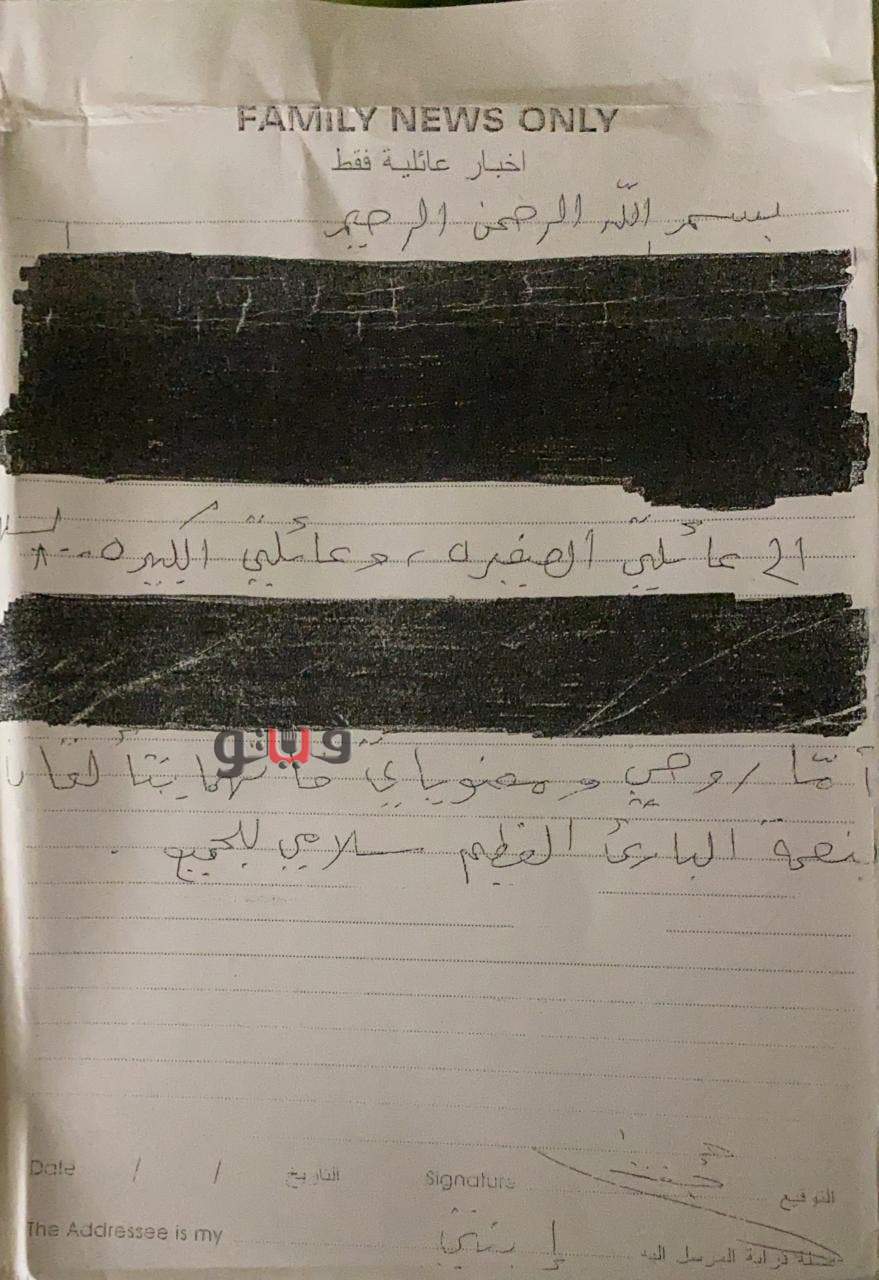 FAMILY NEWS ONLY
اخبار عائلية فقط
بسم الله الرحمن الرحيم
الى عائلتي الصغيره، وعائلتي الكبيره
فيتو
أمّا روحي ومعنوياتي
بنعمة البارئ العظيم سلامي للجميع .
Date / / التاريخ Signature التوقيع
The Addressee is my إبنتي صلة قرابة المرسل اليه